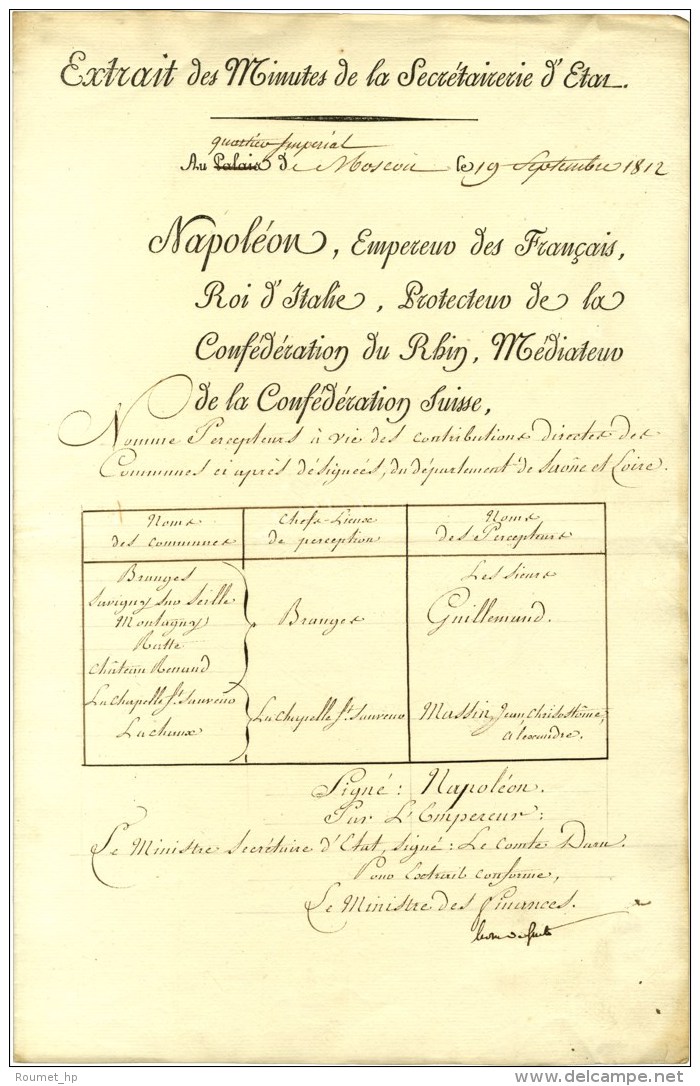 Extrait des Minutes de la Secrétairerie d'Etat.
quartier Impérial
Au Palais de Moscou le 19 Septembre 1812
Napoléon, Empereur des Français,
Roi d'Italie, Protecteur de la
Confédération du Rhin, Médiateur
de la Confédération Suisse,
Nomme Percepteurs à vie des contributions directes des
Communes ci après désignées, du département de Saône et Loire.
Noms
des communes
Chefs-Lieux
de perception
Noms
des Percepteurs
Branges
Savigny sur Seille
Montagny
Ratte
Château Renaud
Branges
Les Sieurs
Guillemaud.
La Chapelle St. Sauveur
Lachaux
La Chapelle St. Sauveur
Massin, Jean Chrisostôme,
Alexandre.
Signé: Napoléon.
Par L'Empereur:
Le Ministre Secrétaire d'Etat, signé: Le Comte Daru.
Pour Extrait conforme,
Le Ministre des Finances.
Roumet_hp
delcampe.net